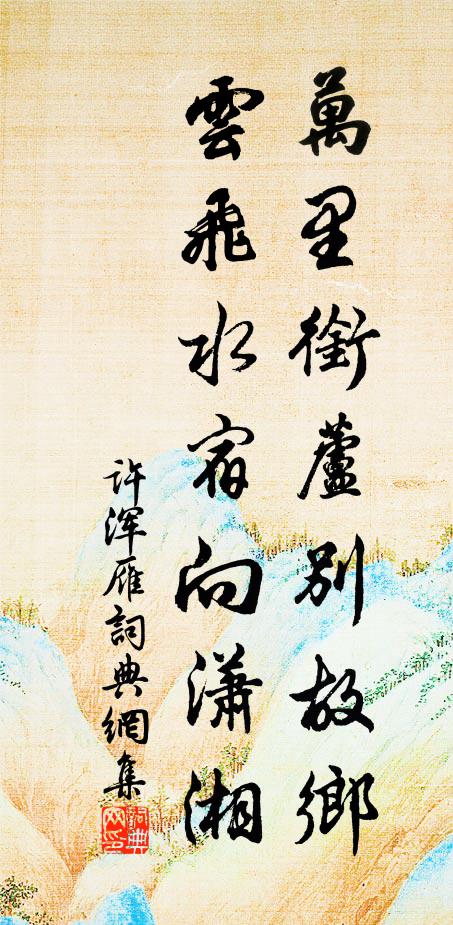 萬里銜蘆別故鄉
雲飛水宿向瀟湘
许浑雁詞典網集
詞典